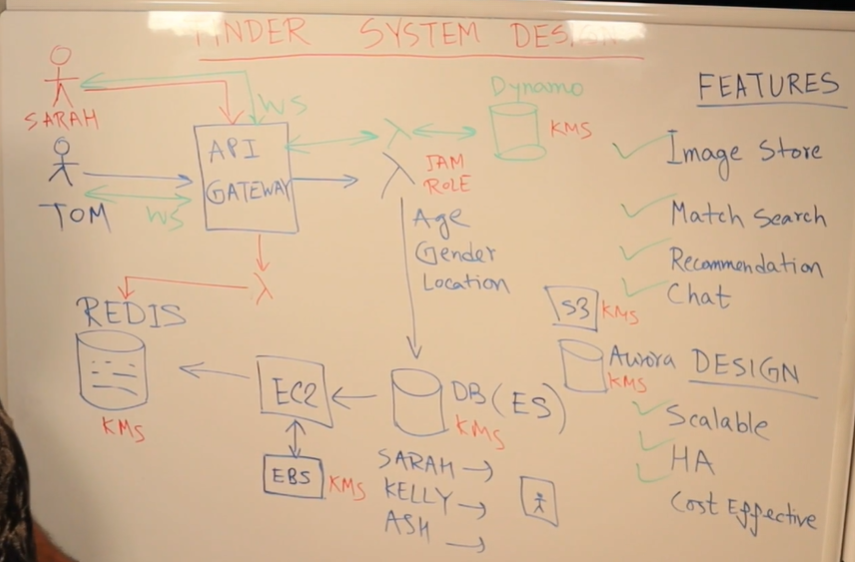 TINDER SYSTEM DESIGN
SARAH
WS
API
GATEWAY
TOM
WS
λ
λ
IAM
ROLE
Age
Gender
Location
Dynamo
KMS
λ
REDIS
KMS
EC2
EBS
KMS
DB (ES)
KMS
SARAH
KELLY
ASH
S3
KMS
Aurora
KMS
FEATURES
Image Store
Match Search
Recommendation
Chat
DESIGN
Scalable
HA
Cost Effective